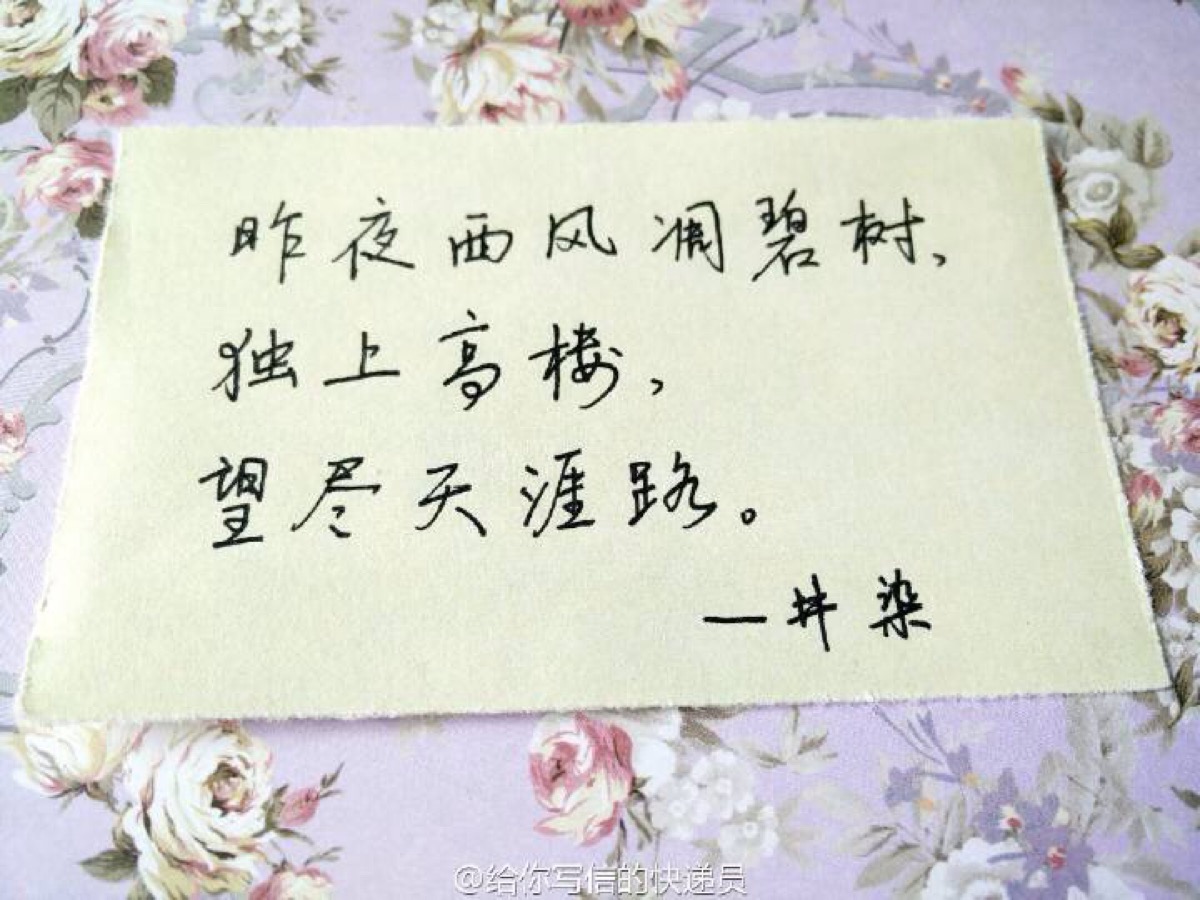 昨夜西风凋碧树、
独上高楼，
望尽天涯路。
—井染
@给你写信的快递员